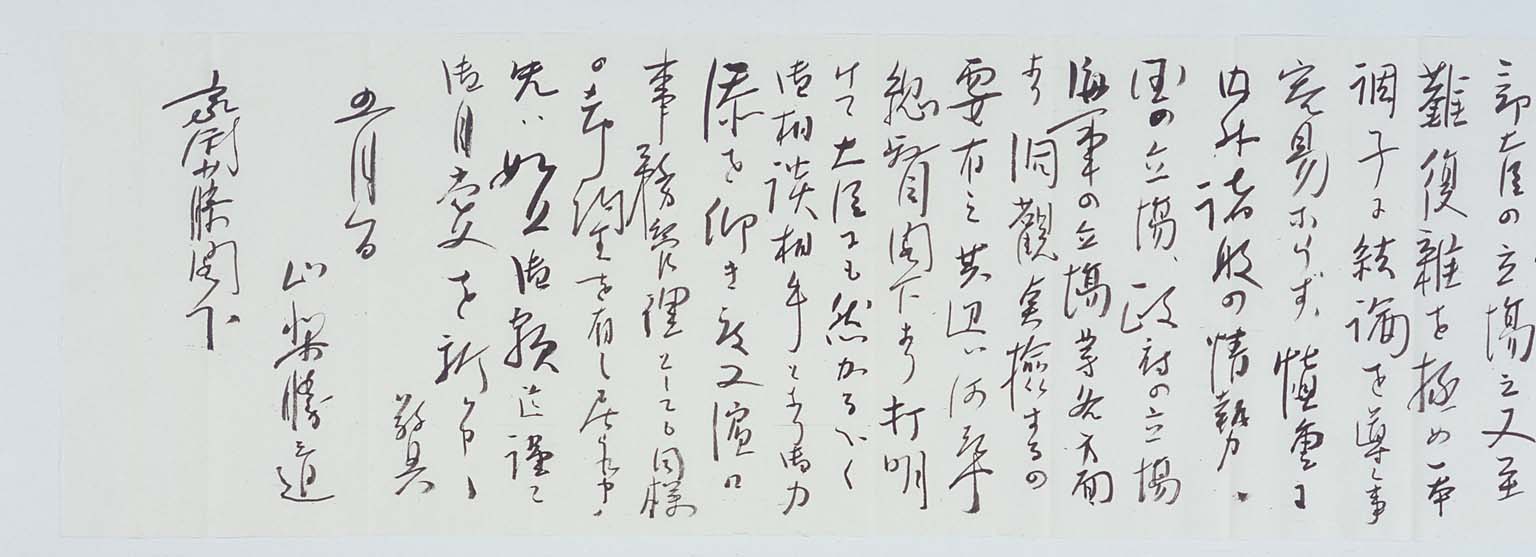 部大臣の立場も又至
難複雑を極め本
調子に結論を導く事
容易ならず、慎重に
内外諸般の情勢、
国の立場、政府の立場
海軍の立場等各方面
より洞観実検するの
要有之其辺は何卒
総督閣下より打明
けて大臣にも然かるべく
御相談相手となり御力
添を仰き度又濱口
事務管理としても同様
の希望を有し居れ申、
先は如上御願迄謹て
御自愛を祈
敬具
五月
山梨勝之進
斎藤 閣下